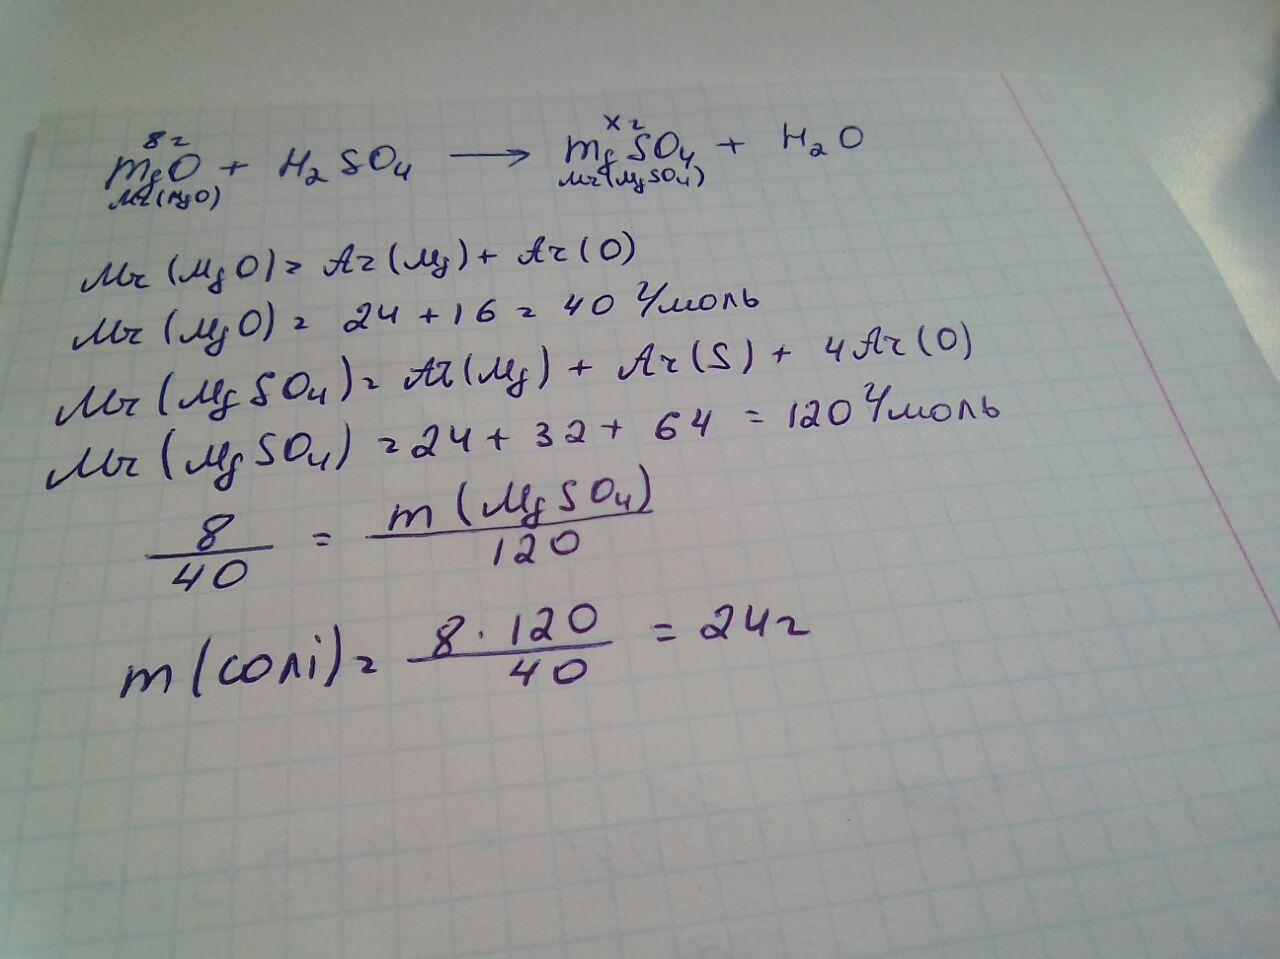 8г xг
MgO + H₂SO₄ → MgSO₄ + H₂O
Mr(MgO) Mr(MgSO₄)
Mr(MgO) = Ar(Mg) + Ar(O)
Mr(MgO) = 24 + 16 = 40 г/моль
Mr(MgSO₄) = Ar(Mg) + Ar(S) + 4Ar(O)
Mr(MgSO₄) = 24 + 32 + 64 = 120 г/моль
8/40 = m(MgSO₄)/120
m(солі) = 8·120/40 = 24г